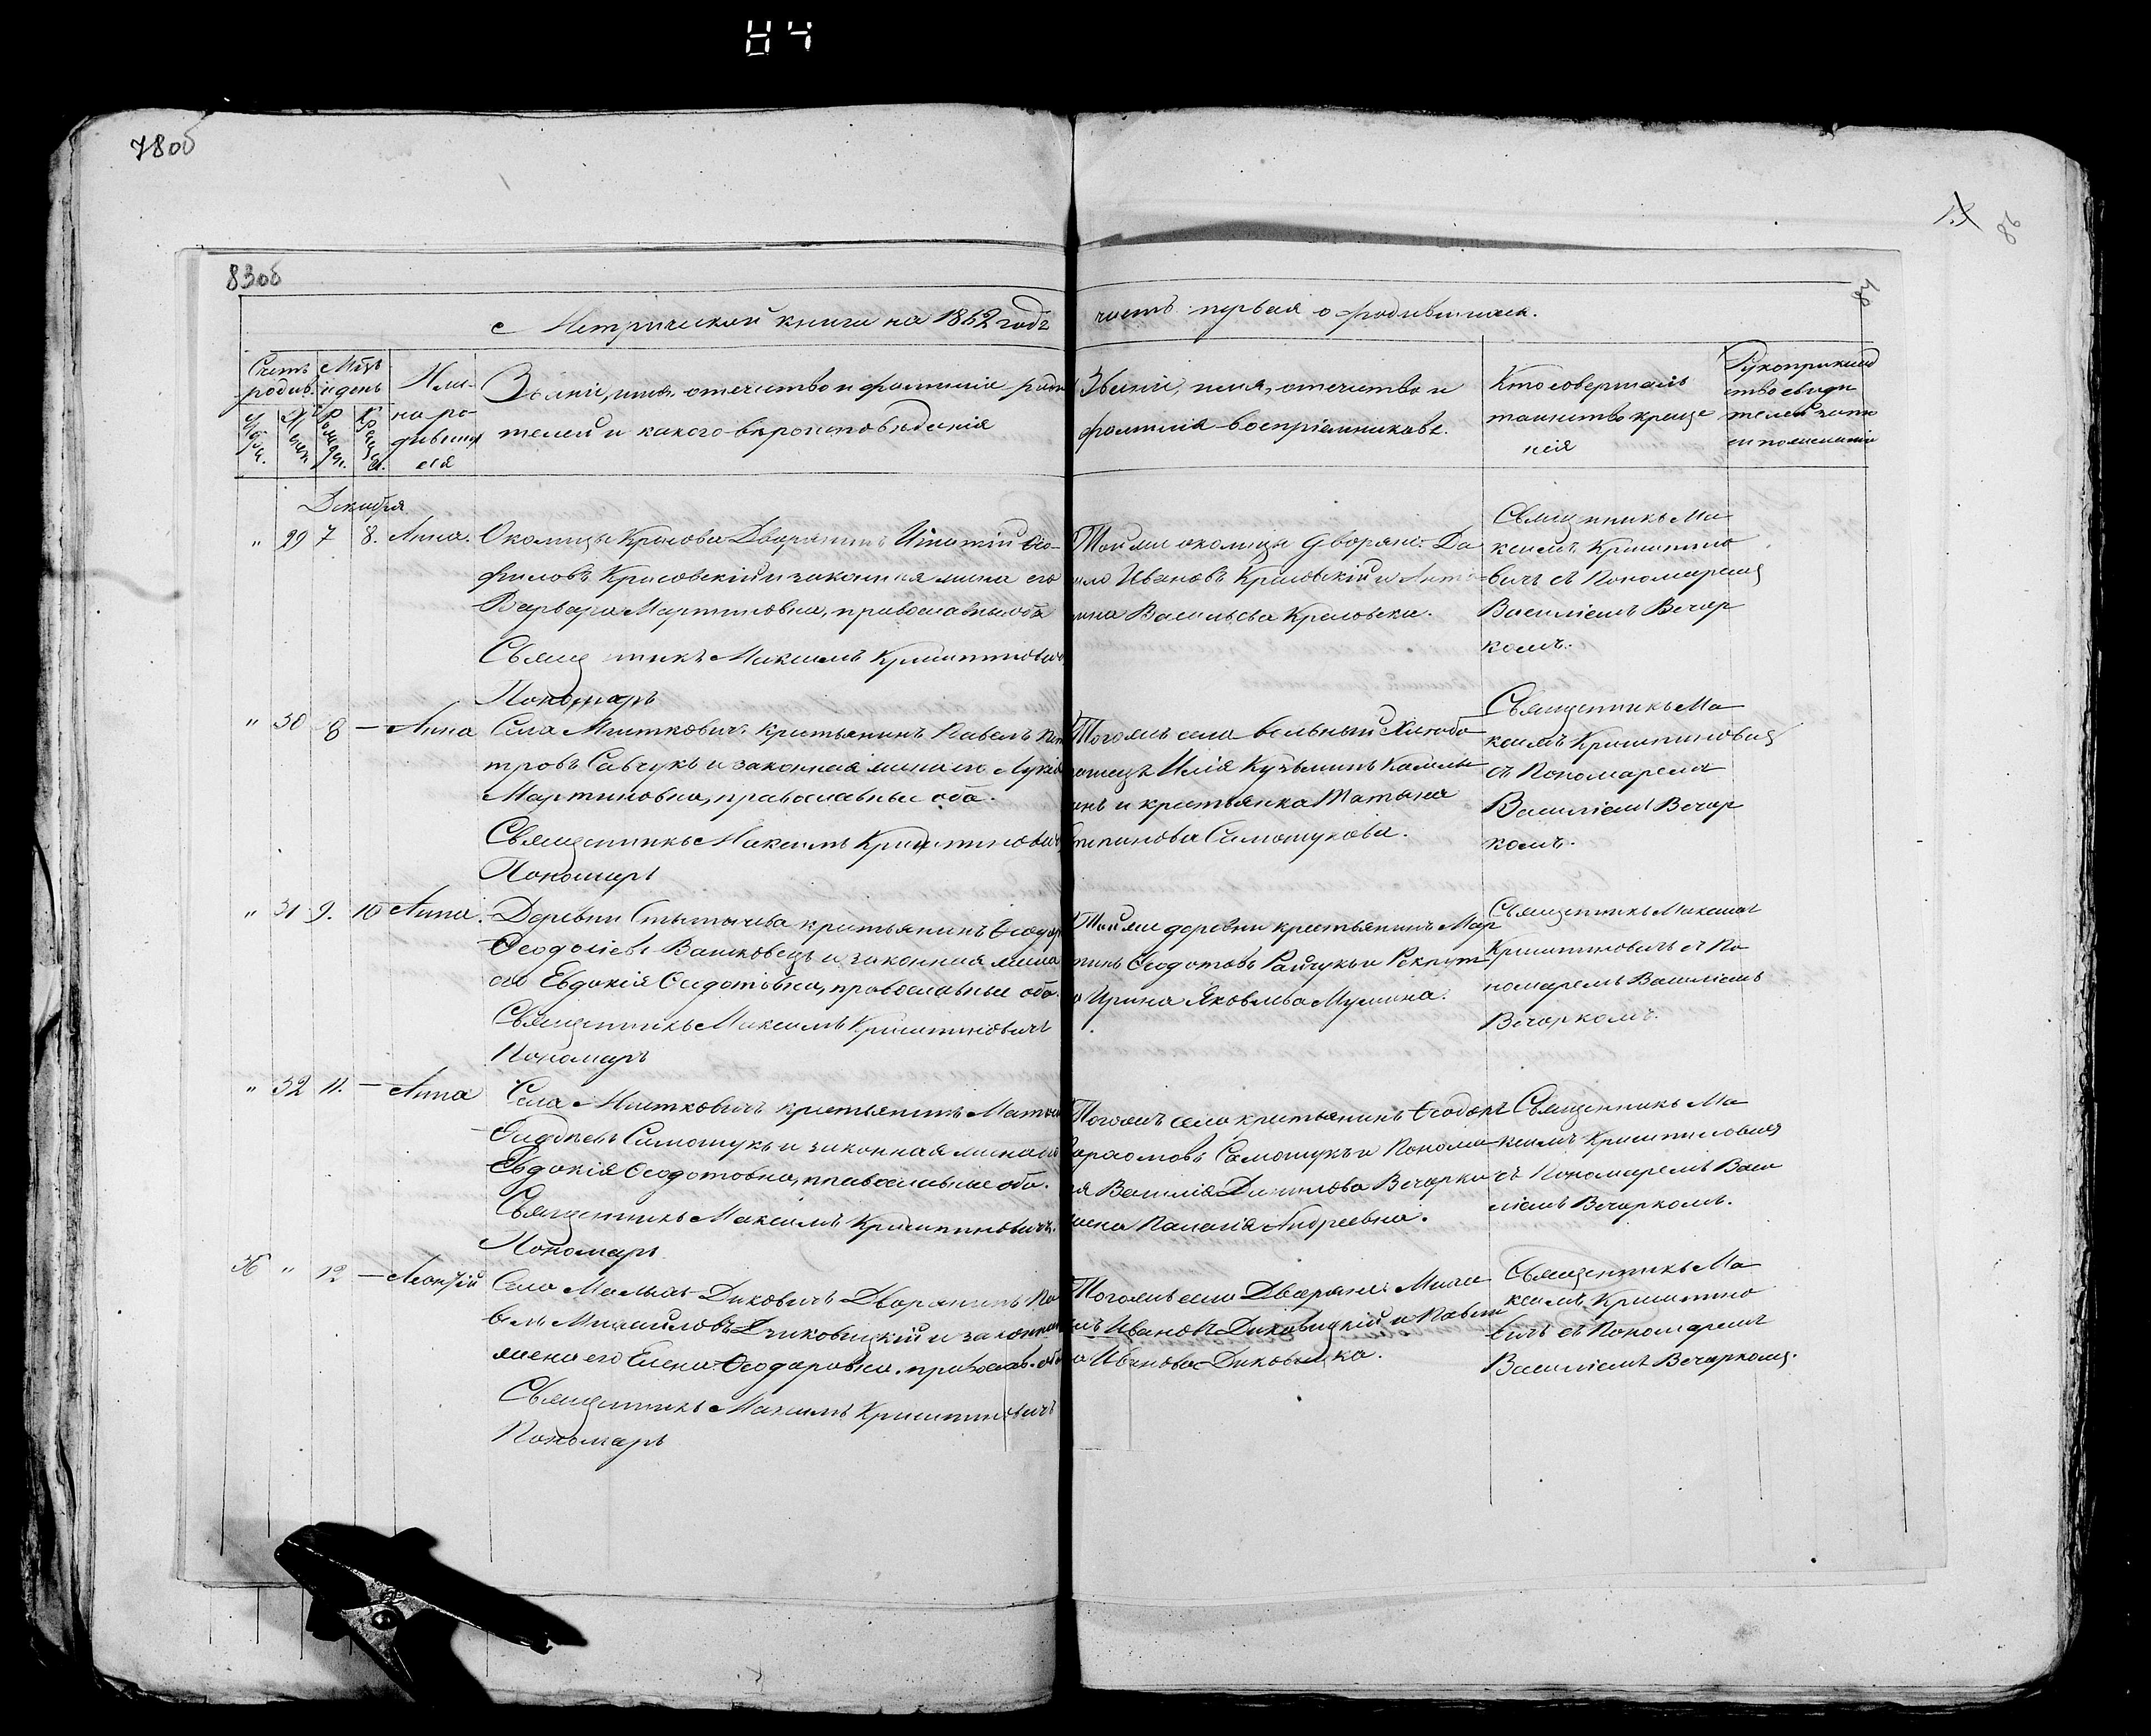 78об
83об
Метрической книги на 1852 годъ
часть первая о родившихся.
Счетъ родив.
Мѣсъ и день
Имена родившихся
Званіе, имя, отечество и фамиліе родителей и какого вѣроисповѣданія
Званіе, имя, отечество и
фамилія воспріемниковъ.
Кто совершалъ
таинство креще
нія
Рукоприклад
ство свиде
телей запи
си по желанію
Декабря
" 29 7 8. Анна.
Околицы Крысова Дворянинъ Игнатій Өео-
филовъ Крисовскій и законная жена его
Варвара Мартиновна, православны оба
Священникъ Максимъ Криштиновичъ
Пономарь
Той же околицы Дворяне: Да
ило Ивановъ Крисовскій и
Васильева Крисовска.
Священникъ Ма
ксимъ Криштино
вичъ съ Пономаремъ
Василіемъ Вечор
комъ.
" 30 8 — Анна
Села Мшитковичъ Крестьянинъ Павелъ Пе
тровъ Савчукъ и законная жена его
Мартиновна, православные оба.
Священникъ Максимъ Криштиновичъ
Пономарь
Тогожъ села вольный Хлебо
пашецъ Илія Кузьминъ
и крестьянка Татьяна
Самошукова.
Священникъ Ма
ксимъ Криштиновичъ
съ Пономаремъ
Василіемъ Вечор
комъ.
" 31 9. 10 Анна.
Деревни Стытычева крестьянинъ Өеодоръ
Өеодосіевъ Вашковецъ и законная жена
его Евдокія Өеодотовна, православные оба.
Священникъ Максимъ Криштиновичъ
Пономарь
Той же деревни крестьянинъ Мар
тинъ Өеодотовъ Райчукъ и Рекрут
Ирина Яковлева
Священникъ Максимъ
Криштиновичъ съ По
номаремъ Василіемъ
Вечоркомъ.
" 32 11. — Анна
Села Мшитковичъ крестьянинъ
Самошукъ и законная жена его
Евдокія Өеодотовна, православные оба.
Священникъ Максимъ Криштиновичъ.
Пономарь
Тогожъ села крестьянинъ Өеодоръ
Самошукъ и Понома
ря Василія Данилова Вечорки
жена Пелагія Андреевна.
Священникъ Ма
ксимъ Криштиновичъ
съ Пономаремъ Васи
ліемъ Вечоркомъ.
36 " 12 — Леонтій
Села Малыхъ Диковичъ Дворянинъ Па
велъ Михайловъ Дзиковицкій и законная
жена его Елена Өеодоровна. православ. оба
Священникъ Максимъ Криштиновичъ
Пономарь
Тогожъ села Дворяне: Миха
илъ Ивановъ Диковицкій и Павли
на Иванова Диковицка.
Священникъ Ма
ксимъ Криштино
вичъ съ Пономаремъ
Василіемъ Вечоркомъ.